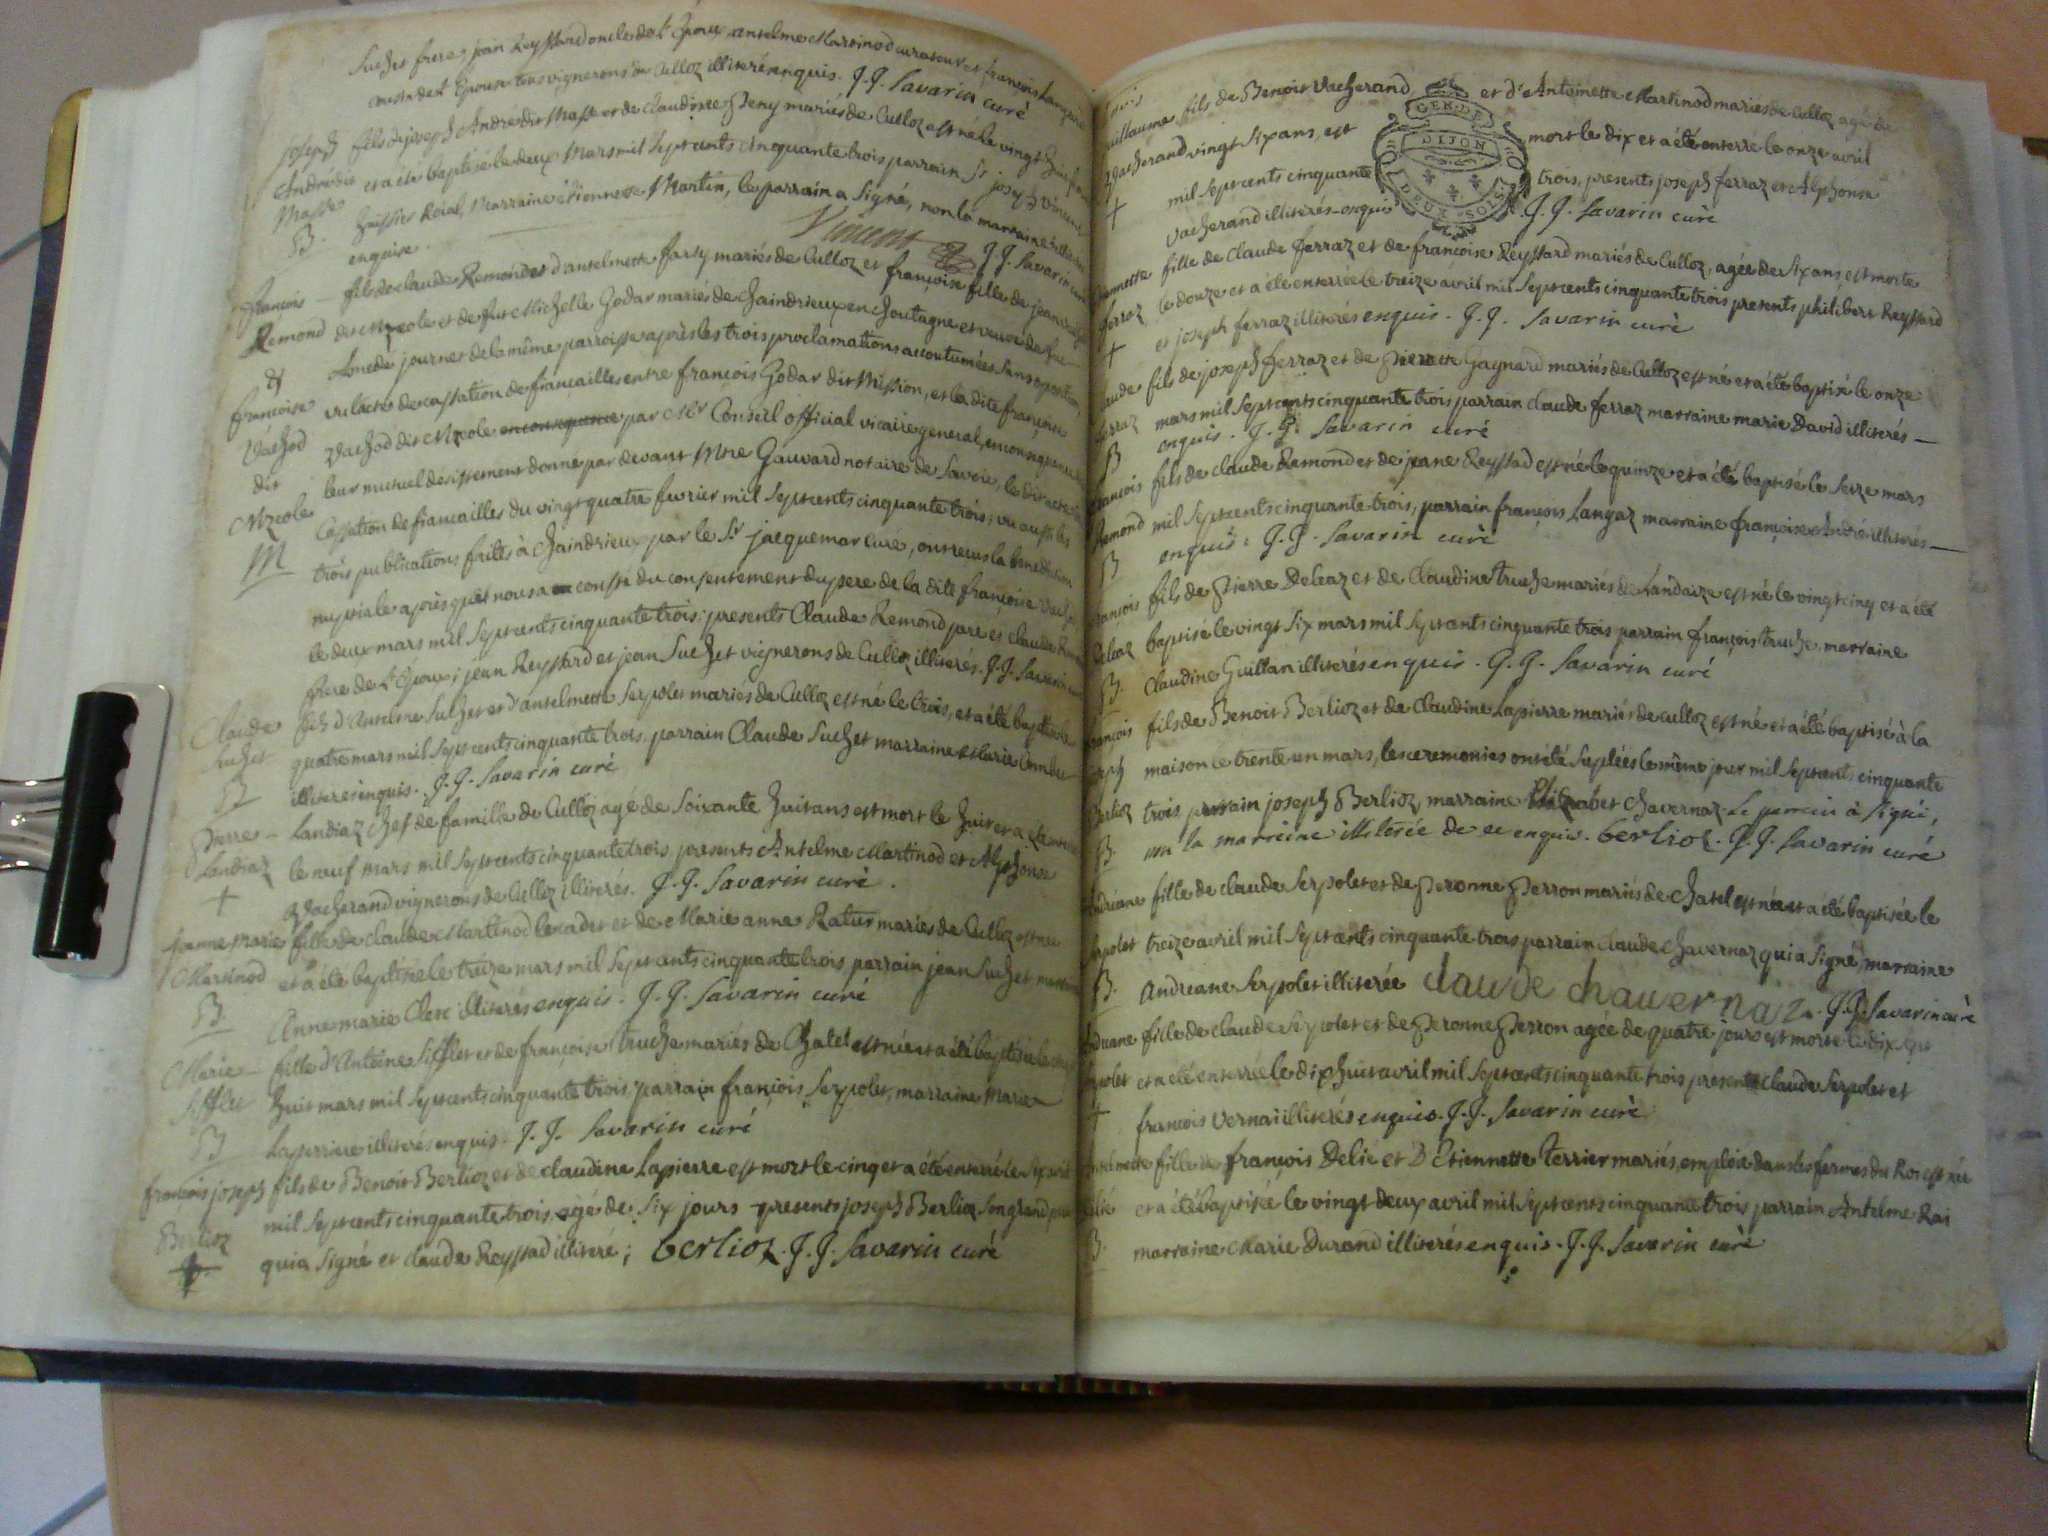 Suchet frere jean Reyssard oncle de l'Epoux anselme Martinod curateur et françois Langaz
de l'Epouse tous vignerons de Culloz illiterés enquis. J.J. Savarin curé
joseph fils de joseph André dit Masse et de claudine Peny mariés de Culloz est né le vingt huit
André dit et a été baptisé le deux Mars mil sept cents cinquante trois parrain Sr joseph Vincent
Masse huissier Roial, Marraine Etiennette Martin, le parrain a signé, non la marraine illiterée
B. enquise. Vincent J.J. Savarin curé
françois fils de claude Remond et d'anselmette Jarsy mariés de Culloz et françoise fille de jean
Remond dit Mreole et de fut Michelle Godar mariés de Chaindrieux en Choutagne et veuve de feu
& Amedé journet de la même parroisse après les trois proclamations accoutumées sans opposition,
françoise vu l'acte de cassation de fiancailles entre françois Godar dit Mission, et la dite françoise
Vachod Vachod dit Mreole en consequence par Mr Conseil official vicaire general, en consequence de
dit leur mutuel desistement donné par devant Mtre Gauvard notaire de Savoie, le dit acte de
Mreole Cassation de fiancailles du vingt quatre fevrier mil sept cents cinquante trois; vu aussi les
M trois publications faites à Chaindrieux par le Sr jacquemar curé, ont recu la benediction
nuptiale après qu'il nous a consté du consentement du pere de la dite françoise Vachod
le deux mars mil sept cents cinquante trois: presents Claude Remond pere et claude Remond
frere de l'Epoux; jean Reyssard et jean Suchet vignerons de Culloz illiterés. J.J. Savarin curé
Claude fils d'Anselme Suchet et d'anselmette Serpolet mariés de Culloz est né le trois, et a été baptisé le
Suchet quatre mars mil sept cents cinquante trois. parrain Claude Suchet marraine Marie
B illiterés enquis. J.J. Savarin curé
Pierre Landiaz chef de famille de Culloz agé de soixante huit ans est mort le huit et a été enterré
Landiaz le neuf mars mil sept cents cinquante trois presents Anselme Martinod et Alphonse
+ Vacherand vignerons de Culloz illiterés. J.J. Savarin curé.
jeanne Marie fille de claude Martinod le cadet et de Marie anne Ratur mariés de Culloz est née
Martinod et a été baptisée le treize mars mil sept cents cinquante trois parrain jean Suchet marraine
B. Anne marie Clerc illiterés enquis. J.J. Savarin curé
Marie fille d'Antoine Sifflet et de françoise Truche mariés de Chatel est née et a été baptisée le
Sifflet huit mars mil sept cents cinquante trois, parrain françois Serpolet, marraine Marie
B Laperriere illiterés enquis. J.J. Savarin curé
françois joseph fils de Benoit Berlioz et de claudine Lapierre est mort le cinq et a été enterré le six avril
Berlioz mil sept cents cinquante trois, agé de six jours presents joseph Berlioz son grand pere
+ qui a signé et claude Reyssad illiteré; berlioz. J.J. Savarin curé
GEN. DE DIJON DEUX SOLS
Guillaume fils de Benoit Vacherand et d'Antoinette Martinod mariés de Culloz agé de
Vacherand vingt six ans, est mort le dix et a été enterré le onze avril
+ mil sept cents cinquante trois, presents joseph ferraz et Alphonse
Vacherand illiterés enquis J.J. Savarin curé
fille de Claude ferraz et de françoise Reyssard mariés de Culloz, agée de six ans, est morte
ferraz le douze et a été enterrée le treize avril mil sept cents cinquante trois presents philibert Reyssard
+ et joseph ferraz illiterés enquis. J.J. Savarin curé
Claude fils de joseph ferraz et de Pierrette Gaynard mariés de Culloz est né et a été baptisé le onze
ferraz mars mil sept cents cinquante trois parrain claude ferraz marraine marie David illiterés
B enquis. J.J. Savarin curé
françois fils de claude Remond et de jeane Reyssad est né le quinze et a été baptisé le seize mars
Remond mil sept cents cinquante trois, parrain françois Langaz marraine françoise André illiterés
B enquis. J.J. Savarin curé
françois fils de Pierre Deleaz et de Claudine Truche mariés de Landaize est né le vingt cinq et a été
Deleaz baptisé le vingt six mars mil sept cents cinquante trois parrain françois Truche, marraine
B. Claudine Guillan illiterés enquis. J.J. Savarin curé
françois fils de Benoit Berlioz et de Claudine Lapierre mariés de culloz est né et a été baptisé à la
joseph maison le trente un mars, les ceremonies ont été suplées le même jour mil sept cents cinquante
Berlioz trois parrain joseph Berlioz, marraine Elizabet Chavernaz. Le parrein à signé,
B. non la marreine illiterée de ce enquise. berlioz. J.J. Savarin curé
Andréane fille de claude Serpolet et de Peronne Perron mariés de Chatel est née et a été baptisée le
Serpolet treize avril mil sept cents cinquante trois parrain claude Chavernaz qui a signé, marraine
B. Andreane Serpolet illiterée claude chauernaz. J.J. Savarin curé
Andreane fille de claude Serpolet et de Peronne Perron agée de quatre jours est morte le dix sept
Serpolet et a été enterrée le dix huit avril mil sept cents cinquante trois presents claude Serpolet et
+ françois Vernai illiterés enquis. J.J. Savarin curé.
Anselmette fille de françois Delié et d'Etiennette Terrier mariés, emploié dans les fermes du Roi est née
Delié et a été baptisée le vingt deux avril mil sept cents cinquante trois parrain Antelme Rai
B. marraine Marie Durand illiterés enquis. J.J. Savarin curé